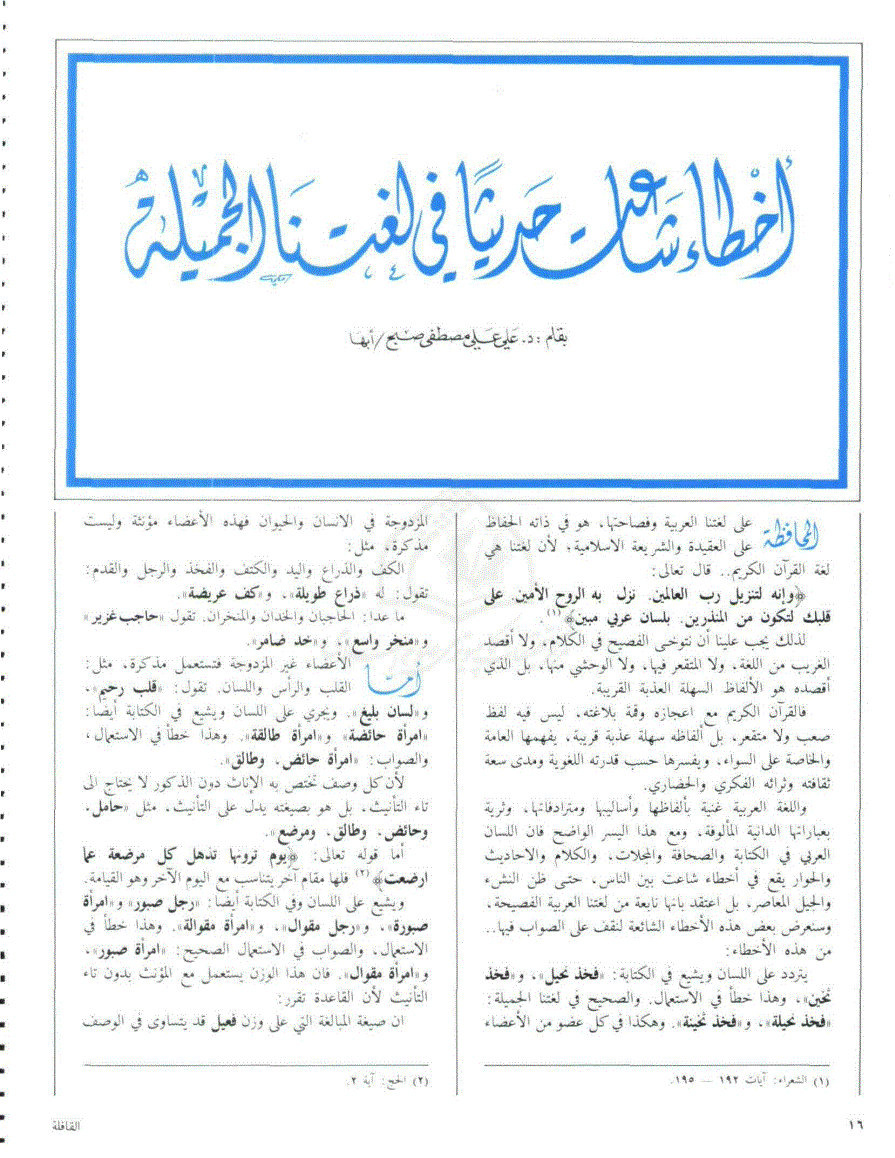 أخطاء شاعت حديثًا في لغتنا الجميلة
بقلم : د. علي علي مصطفى صبح / أبها
المحافظة على لغتنا العربية وفصاحتها، هو في ذاته الحفاظ
على العقيدة والشريعة الاسلامية؛ لأن لغتنا هي
لغة القرآن الكريم.. قال تعالى:
﴿وإنه لتنزيل رب العالمين. نزل به الروح الأمين. على
قلبك لتكون من المنذرين. بلسان عربي مبين﴾(١).
لذلك يجب علينا أن نتوخى الفصيح في الكلام، ولا أقصد
الغريب من اللغة، ولا المتقعر فيها، ولا الوحشي منها، بل الذي
أقصده هو الألفاظ السهلة العذبة القريبة.
فالقرآن الكريم مع اعجازه وقمة بلاغته، ليس فيه لفظ
صعب ولا متقعر، بل ألفاظه سهلة عذبة قريبة، يفهمها العامة
والخاصة على السواء، ويفسرها حسب قدرته اللغوية ومدى سعة
ثقافته وثرائه الفكري والحضاري.
واللغة العربية غنية بألفاظها وأساليبها ومترادفاتها، وثرية
بعباراتها الدانية المألوفة، ومع هذا اليسر الواضح فان اللسان
العربي في الكتابة والصحافة والمجلات، والكلام والاحاديث
والحوار يقع في أخطاء شاعت بين الناس، حتى ظن النشء
والجيل المعاصر، بل اعتقد بانها نابعة من لغتنا العربية الفصيحة،
وسنعرض بعض هذه الأخطاء الشائعة لنقف على الصواب فيها..
من هذه الأخطاء:
يتردد على اللسان ويشيع في الكتابة: «فخذ نحيل»، و«فخذ
ثخين»، وهذا خطأ في الاستعمال. والصحيح في لغتنا الجميلة:
«فخذ نحيلة»، و«فخذ ثخينة». وهكذا في كل عضو من الأعضاء
(١) الشعراء: آيات ١٩٢ — ١٩٥.
المزدوجة في الانسان والحيوان فهذه الأعضاء مؤنثة وليست
مذكرة، مثل:
الكف والذراع واليد والكتف والفخذ والرجل والقدم:
تقول: له «ذراع طويلة»، و«كف عريضة».
ما عدا: الحاجبان والخدان والمنخران. تقول «حاجب غزير»
و«منخر واسع»، و«خد ضامر».
أمـا الأعضاء غير المزدوجة فتستعمل مذكرة، مثل:
القلب والرأس واللسان. تقول: «قلب رحيم»،
و«لسان بليغ». ويجري على اللسان ويشيع في الكتابة أيضا:
«امرأة حائضة» و«امرأة طالقة». وهذا خطأ في الاستعمال،
والصواب: «امرأة حائض، وطالق».
لأن كل وصف تختص به الإناث دون الذكور لا يحتاج الى
تاء التأنيث، بل هو بصيغته يدل على التأنيث، مثل «حامل،
وحائض، وطالق، ومرضع».
أما قوله تعالى: ﴿يوم ترونها تذهل كل مرضعة عما
ارضعت﴾(٢) فلها مقام آخر يتناسب مع اليوم الآخر وهو القيامة.
ويشيع على اللسان وفي الكتابة أيضا: «رجل صبور» و«امرأة
صبورة»، و«رجل مقوال»، و«امرأة مقوالة». وهذا خطأ في
الاستعمال، والصواب في الاستعمال الصحيح: «امرأة صبور»،
و«امرأة مقوال». فان هذا الوزن يستعمل مع المؤنث بدون تاء
التأنيث لأن القاعدة تقرر:
ان صيغة المبالغة التي على وزن فعيل قد يتساوى في الوصف
(٢) الحج: آية ٢.
١٦
القافلة